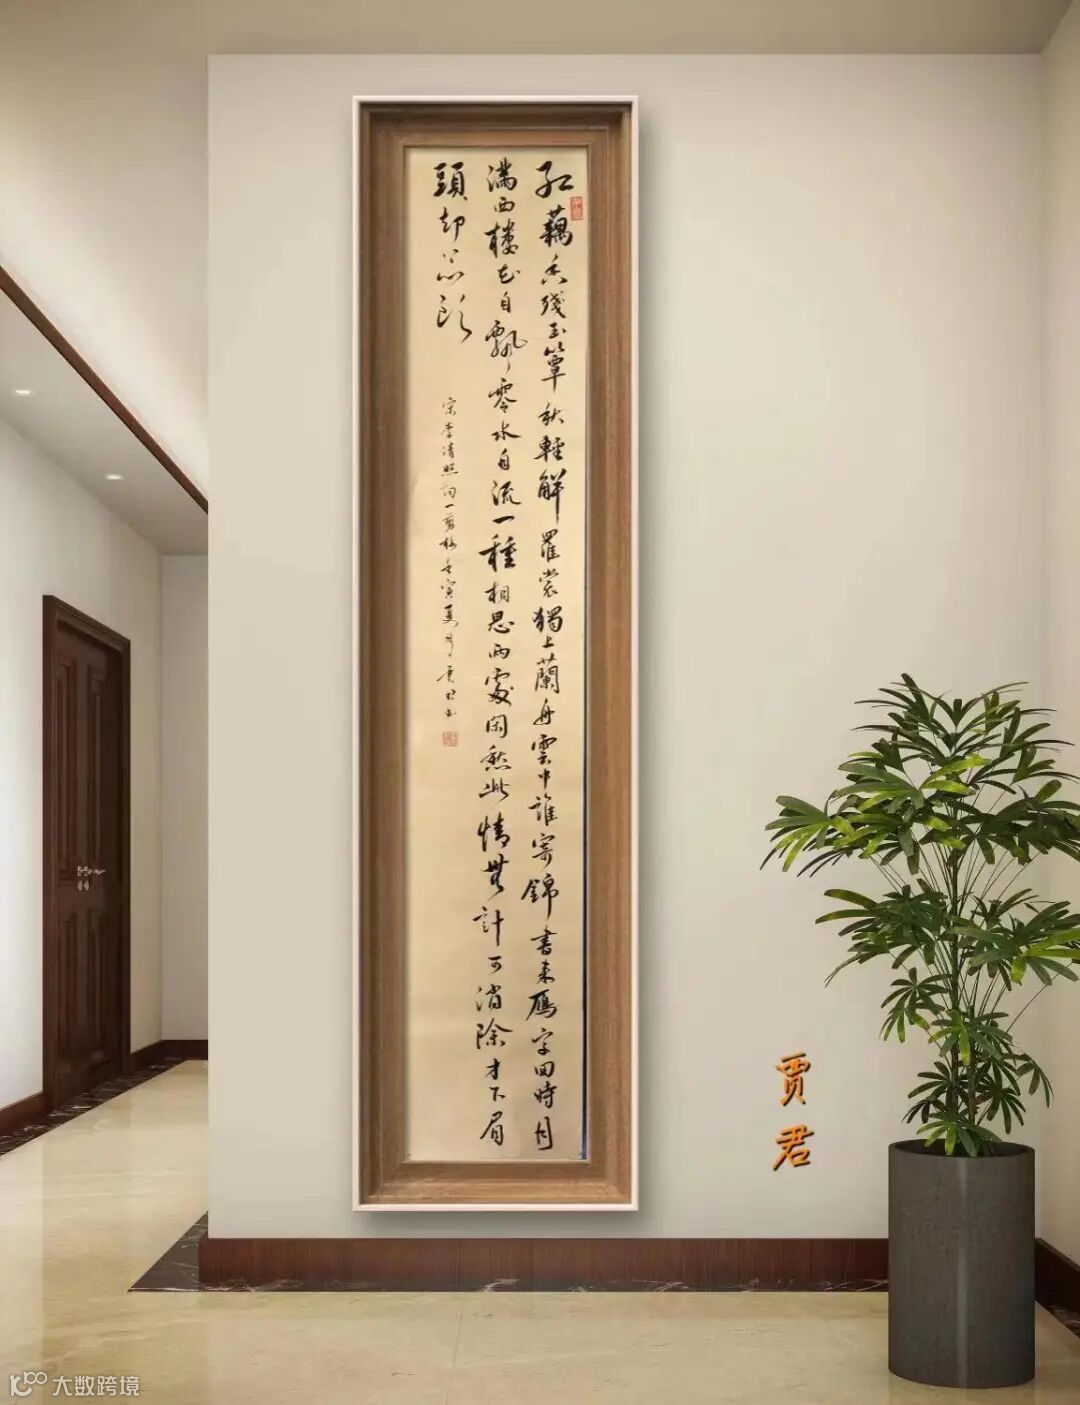 紅藕香殘玉簟秋輕解羅裳獨上蘭舟雲中誰寄錦書來雁字回時月
滿西樓花自飄零水自流一種相思兩處閑愁此情無計可消除才下眉
頭却上心頭
宋李清照詞一剪梅壬寅夏月賈君書
贾君
大数跨境